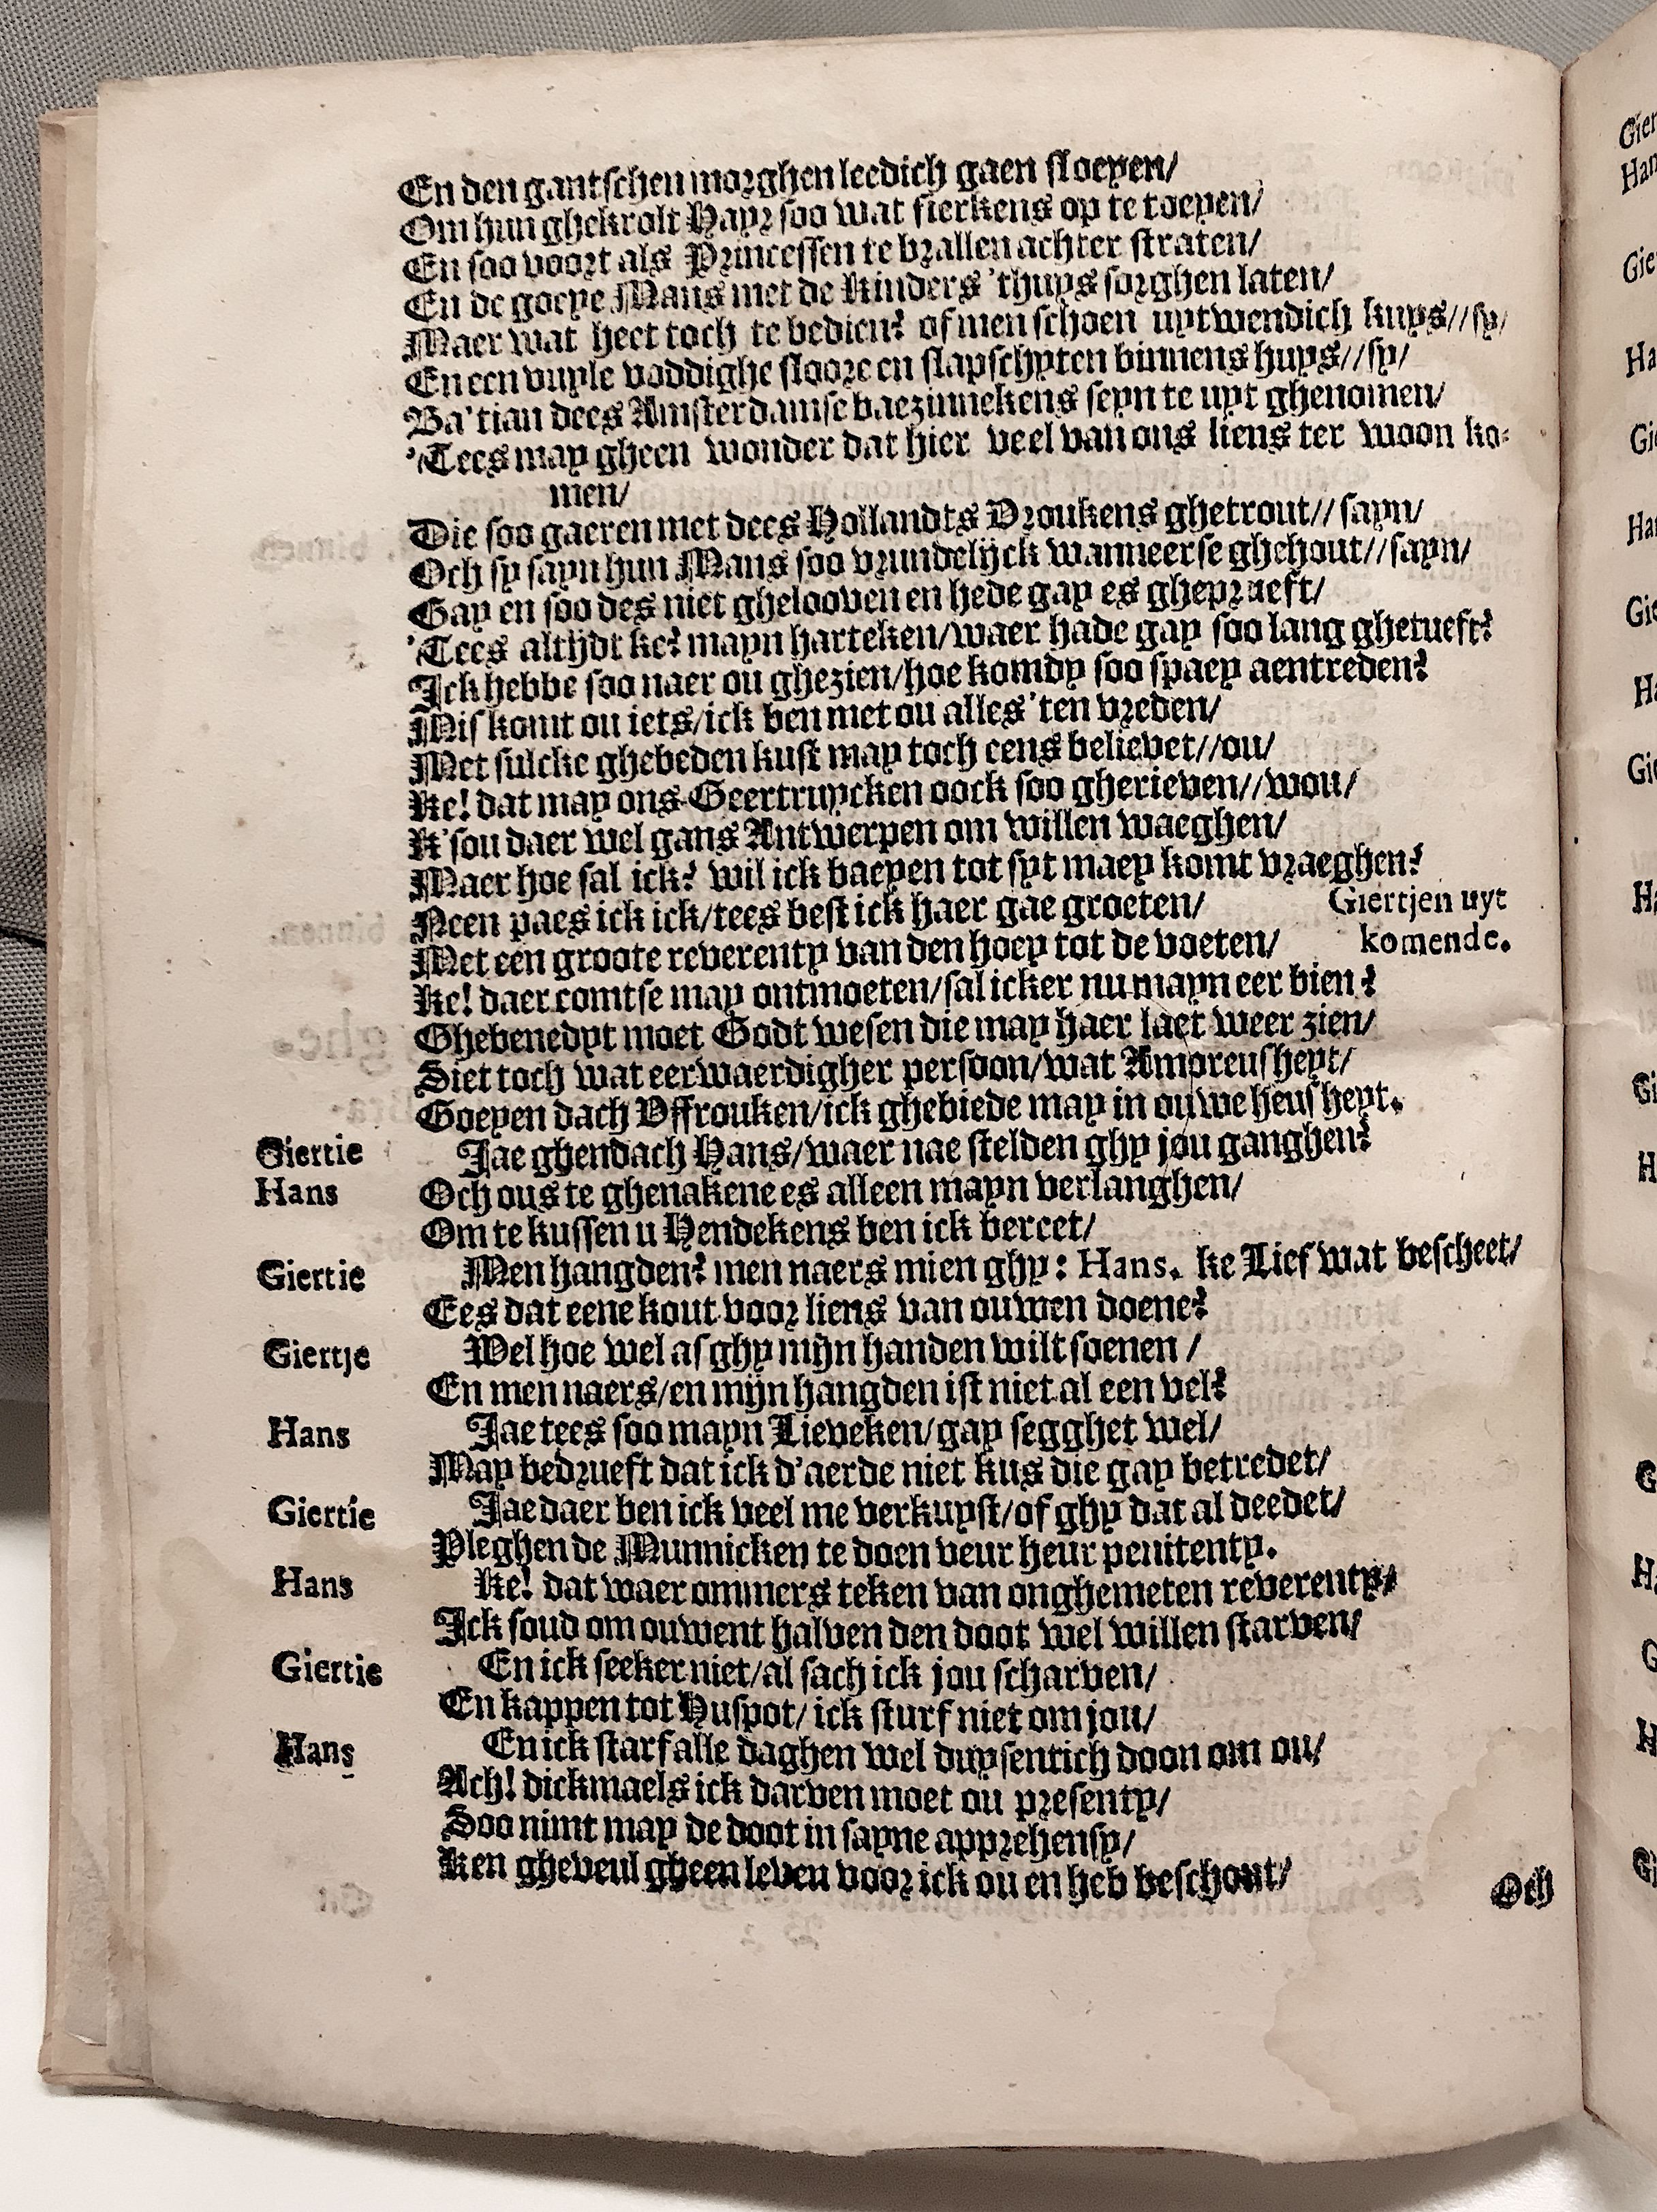 En den gantschen morghen leedich gaen sloeyen/
Om hun ghekrolt Hayr soo wat sierkens op te toeyen/
En soo voort als Princessen te brallen achter straten/
En de goeye Mans met de Kinders 'thuys sorghen laten/
Maer wat heet toch te bedien? of men schoen uytwendich kuys//sy/
En een vuyle voddighe sloore en slapschyten binnens huys//sy/
Ba'tian dees Amsterdamse baezinnekens seyn te uyt ghenomen/
'Tees may gheen wonder dat hier veel van ons liens ter woon ko-
men/
Die soo gaeren met dees Hollandts Vroukens ghetrout//sayn/
Och sy sayn hun Mans soo vrundelijck wanneer se ghehout//sayn/
Gay en soo des niet ghelooven en hede gay es ghepraeft/
'Tees altijdt ke? mayn harteken/waer hade gay soo lang ghetueft?
Ick hebbe soo naer ou ghezien/hoe komdy soo spaey aentreden?
Mis komt ou iets/ick ben met ou alles 'ten vreden/
Met sulcke ghebeden kust may toch eens believet//ou/
Ke! dat may ons Geertruycken oock soo gherieven//wou/
K'sou daer wel gans Antwerpen om willen waeghen/
Maer hoe sal ick? wil ick baeyen tot syt maey komt vraeghen?
Neen paes ick ick/tees best ick haer gae groeten/
Giertjen uyt
Met een groote reverenty van den hoey tot de voeten/
komende.
Ke! daer comtse may ontmoeten/sal icker nu mayn eer bien?
Ghebenedyt moet Godt wesen die may haer laet weer zien/
Siet toch wat eerwaerdigher persoon/wat Amoreusheyt/
Goeyen dach Vffrouken/ick ghebiede may in ouwe heusheyt.
Giertie Jae ghendach Hans/waer nae stelden ghy jou ganghen?
Hans Och ous te ghenakene es alleen mayn verlanghen/
Om te kussen u Hendekens ben ick bereet/
Giertie Men hangden? men naers mien ghy: Hans. ke Lief wat bescheet/
Ees dat eene kout voor liens van ouwen doene?
Giertje Wel hoe wel as ghy mijn handen wilt soenen/
En men naers/en mijn hangden ist niet al een vel?
Hans Jae tees soo mayn Lieveken/gay segghet wel/
May bedrueft dat ick d'aerde niet kus die gay betredet/
Giertie Jae daer ben ick veel me verkuyst/of ghy dat al deedet/
Pleghen de Munnicken te doen veur heur penitenty.
Hans Ke! dat waer ommers teken van onghemeten reverenty/
Ick soud om ouwent halven den doot wel willen starven/
Giertie En ick seeker niet/al sach ick jou scharven/
En kappen tot Huspot/ick sturf niet om jou/
Hans En ick starf alle daghen wel duysentich doon om ou/
Ach! dickmaels ick darven moet ou presenty/
Soo nimt may de doot in sayne apprehensy/
Ken gheveul gheen leven voor ick ou en heb beschout/
Och